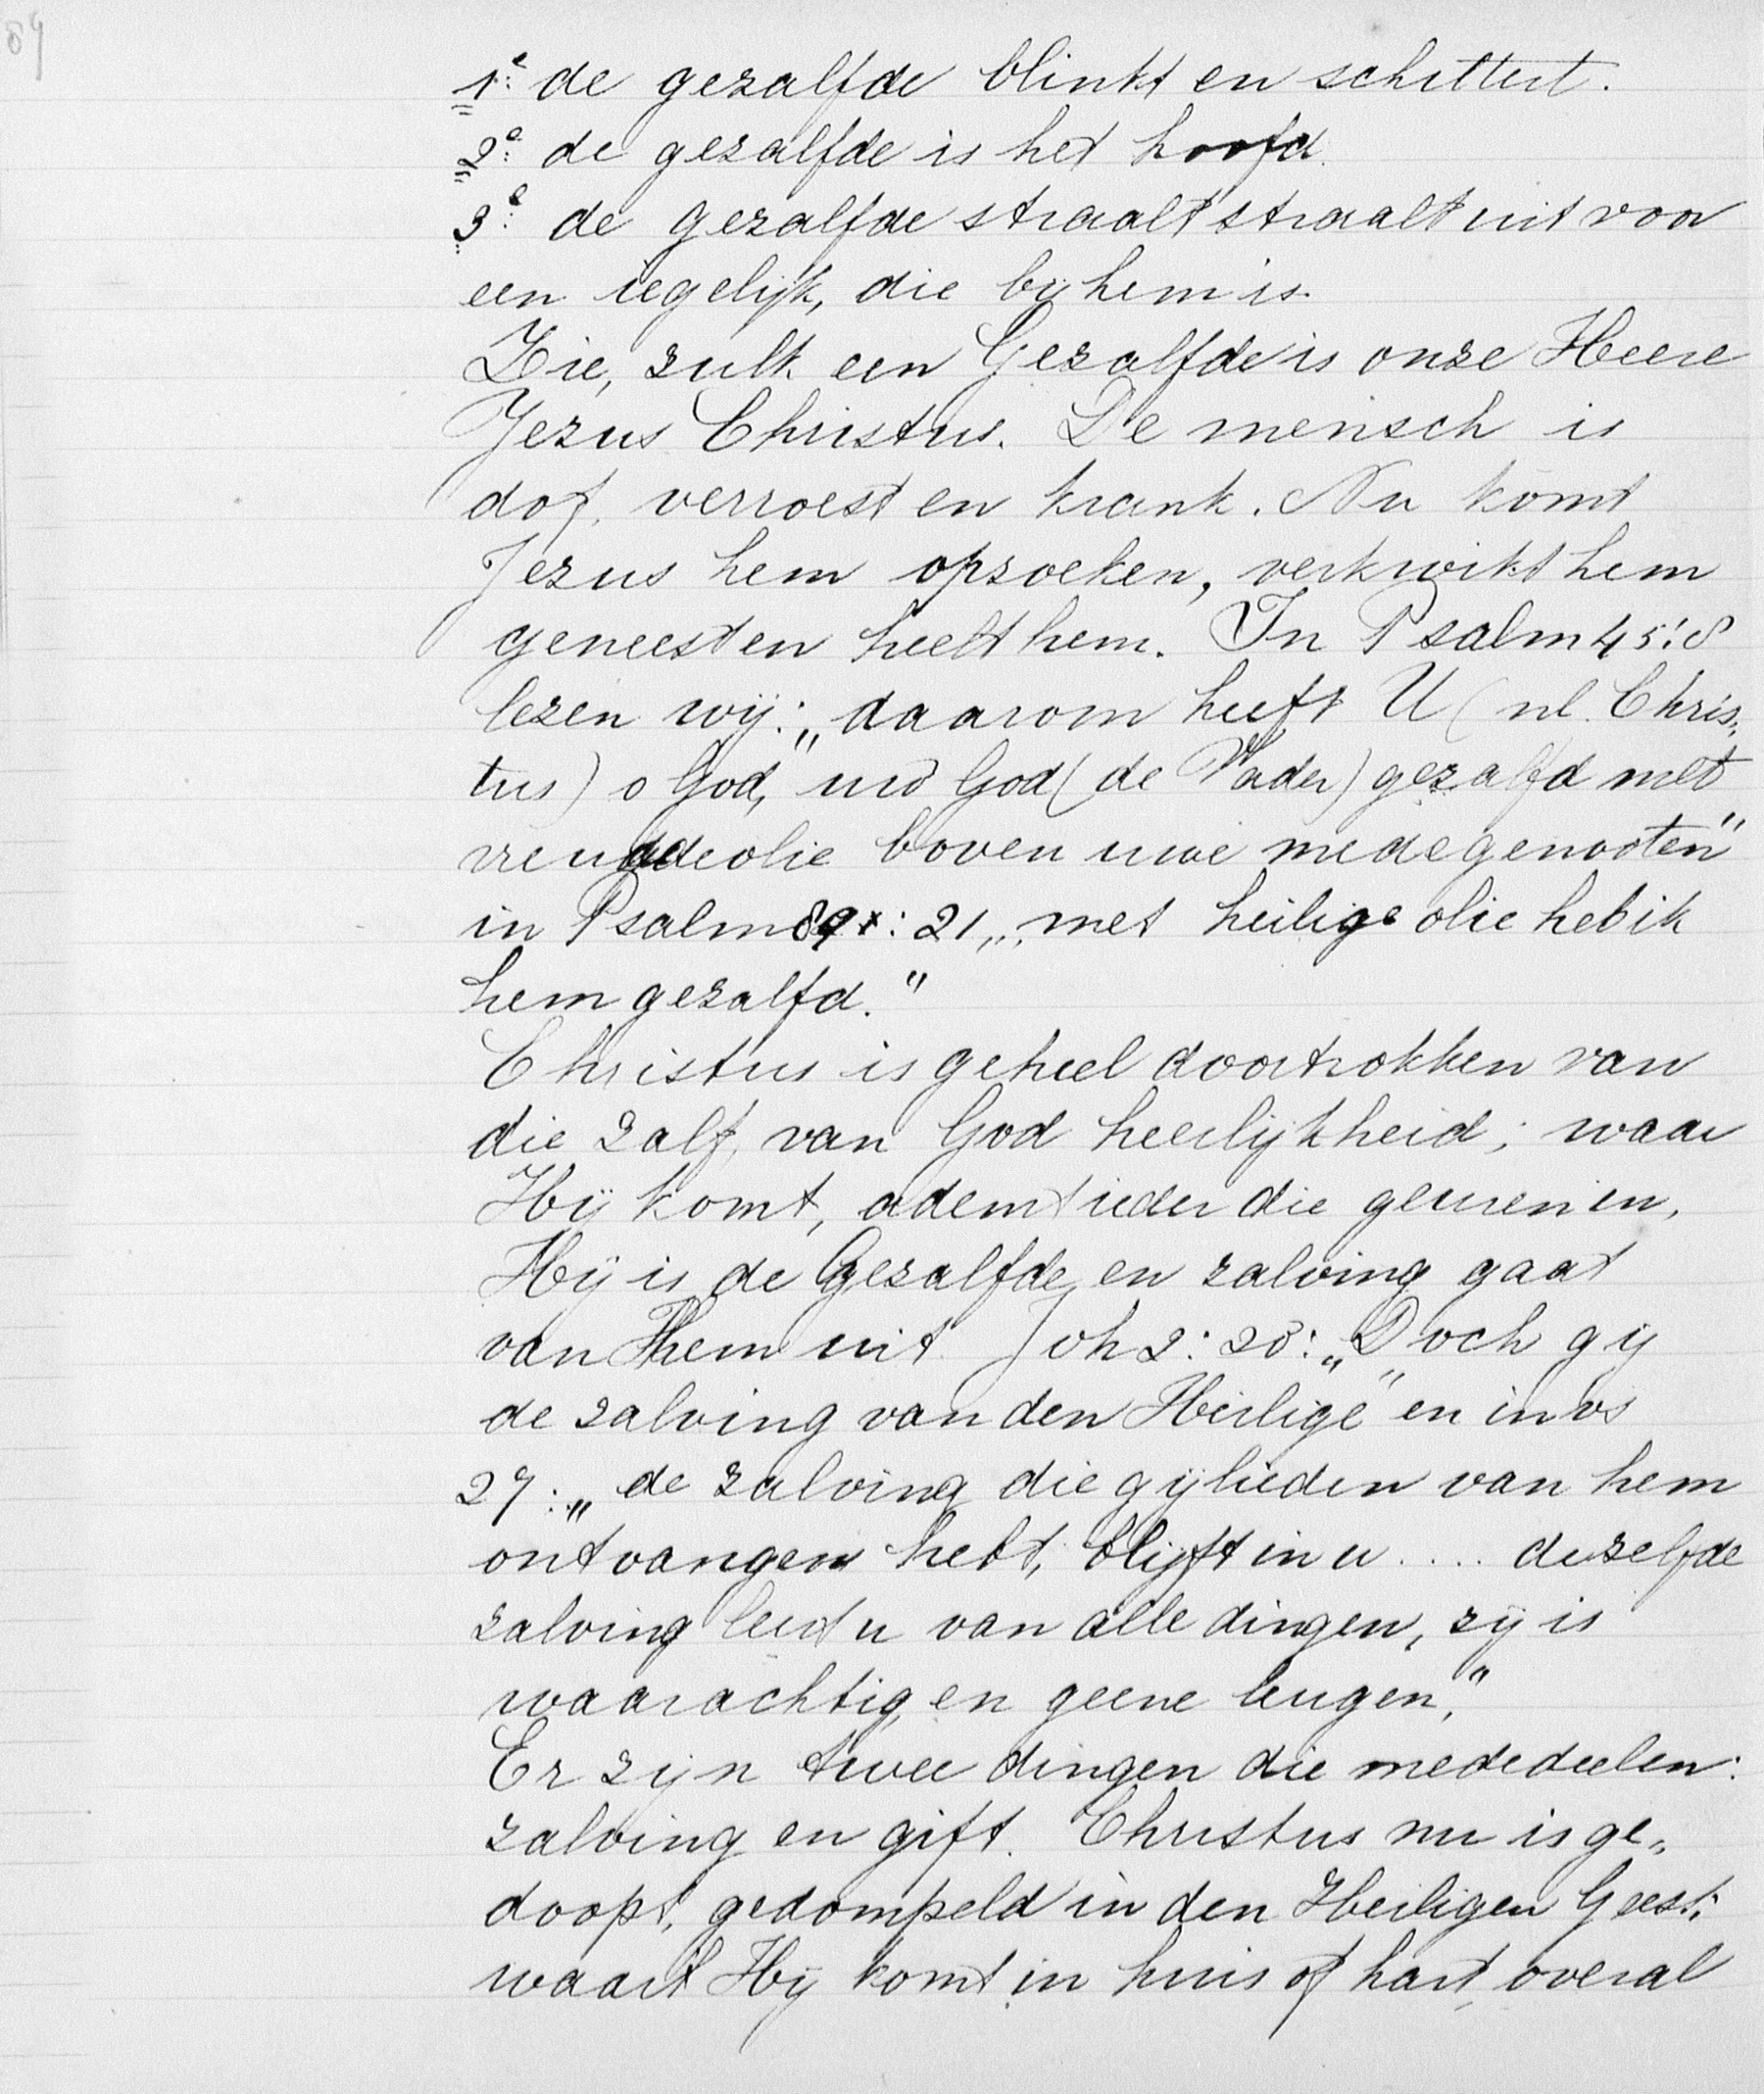 89
1e: de gezalfde blinkt en schittert.
2e: de gezalfde is het hoofd.
3e: de gezalfde straalt straalt uit voor
een iegelijk, die bij hem is.
Zie, zulk een Gezalfde is onze Heere
Jezus Christus. De mensch is
dof, verroest en krank. Nu komt
Jezus hem opzoeken, verkwikt hem
geneest en heelt hem. In Psalm 45:8
lezen wij: „daarom heeft U (nl. Chris„
tus) o God, uw God (de Vader) gezalfd met
vreuddeolie boven uwe medegenooten"
in Psalm 89: 21 „met heilige olie heb ik
hem gezalfd."
Christus is geheel doortrokken van
die zalf, van God heerlijkheid; waar
Hij komt, ademt ieder die geuren in,
Hij is de Gezalfde, en zalving gaat
van Hem uit. Joh 2: 20: „Doch gij
de zalving van den Heilige" en in vs
27: „de zalving die gijlieden van hem
ontvangen hebt, blijft in u .... dezelfde
zalving leert u van alle dingen, zij is
waarachtig, en geene leugen,"
Er zijn twee dingen die mededeelen:
zalving en gift. Christus nu is ge„
doopt, gedompeld in den Heiligen Geest;
waart Hij komt in huis of hart, overal